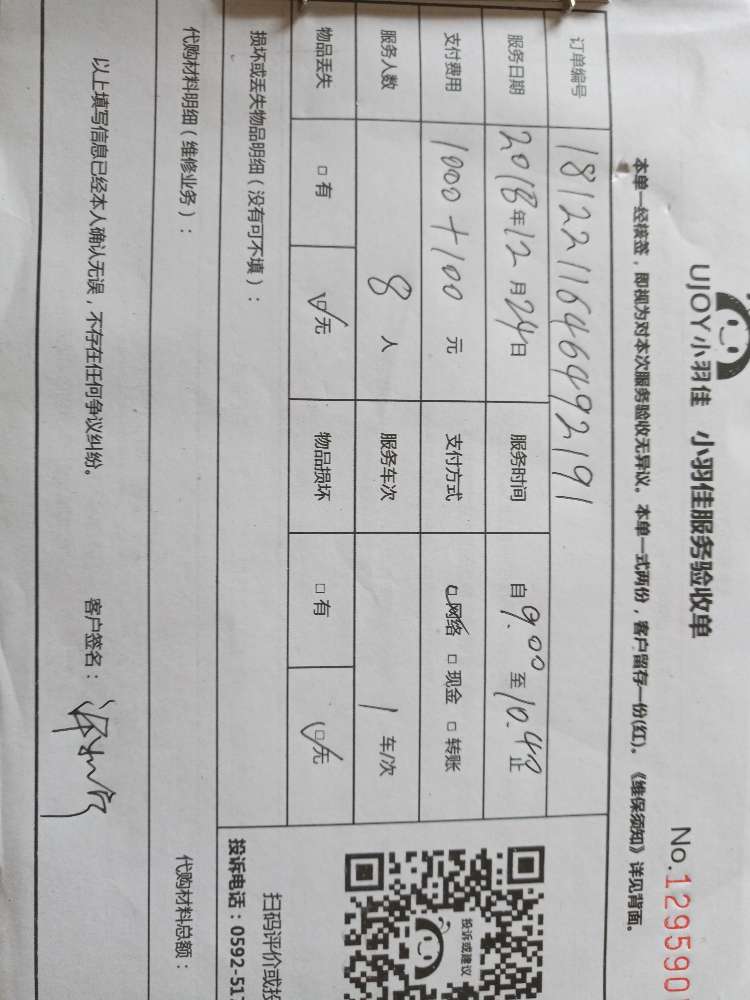 UJOY小羽佳 小羽佳服务验收单
No.129590
本单一经核签，即视为对本次服务验收无异议。本单一式两份，客户留存一份(红)。《维保须知》详见背面。
订单编号 1812211646492191
服务日期 2018年12月24日 服务时间 自9.00至10.40止
支付费用 1000+100 元 支付方式 □网络 □现金 □转账
服务人数 8 人 服务车次 1 车/次
物品丢失 □有 □无 物品损坏 □有 □无
损坏或丢失物品明细（没有可不填）：
投诉或建议
扫码评价或投
投诉电话：0592-51
代购材料明细（维修业务）： 代购材料总额：
以上填写信息已经本人确认无误，不存在任何争议纠纷。 客户签名：